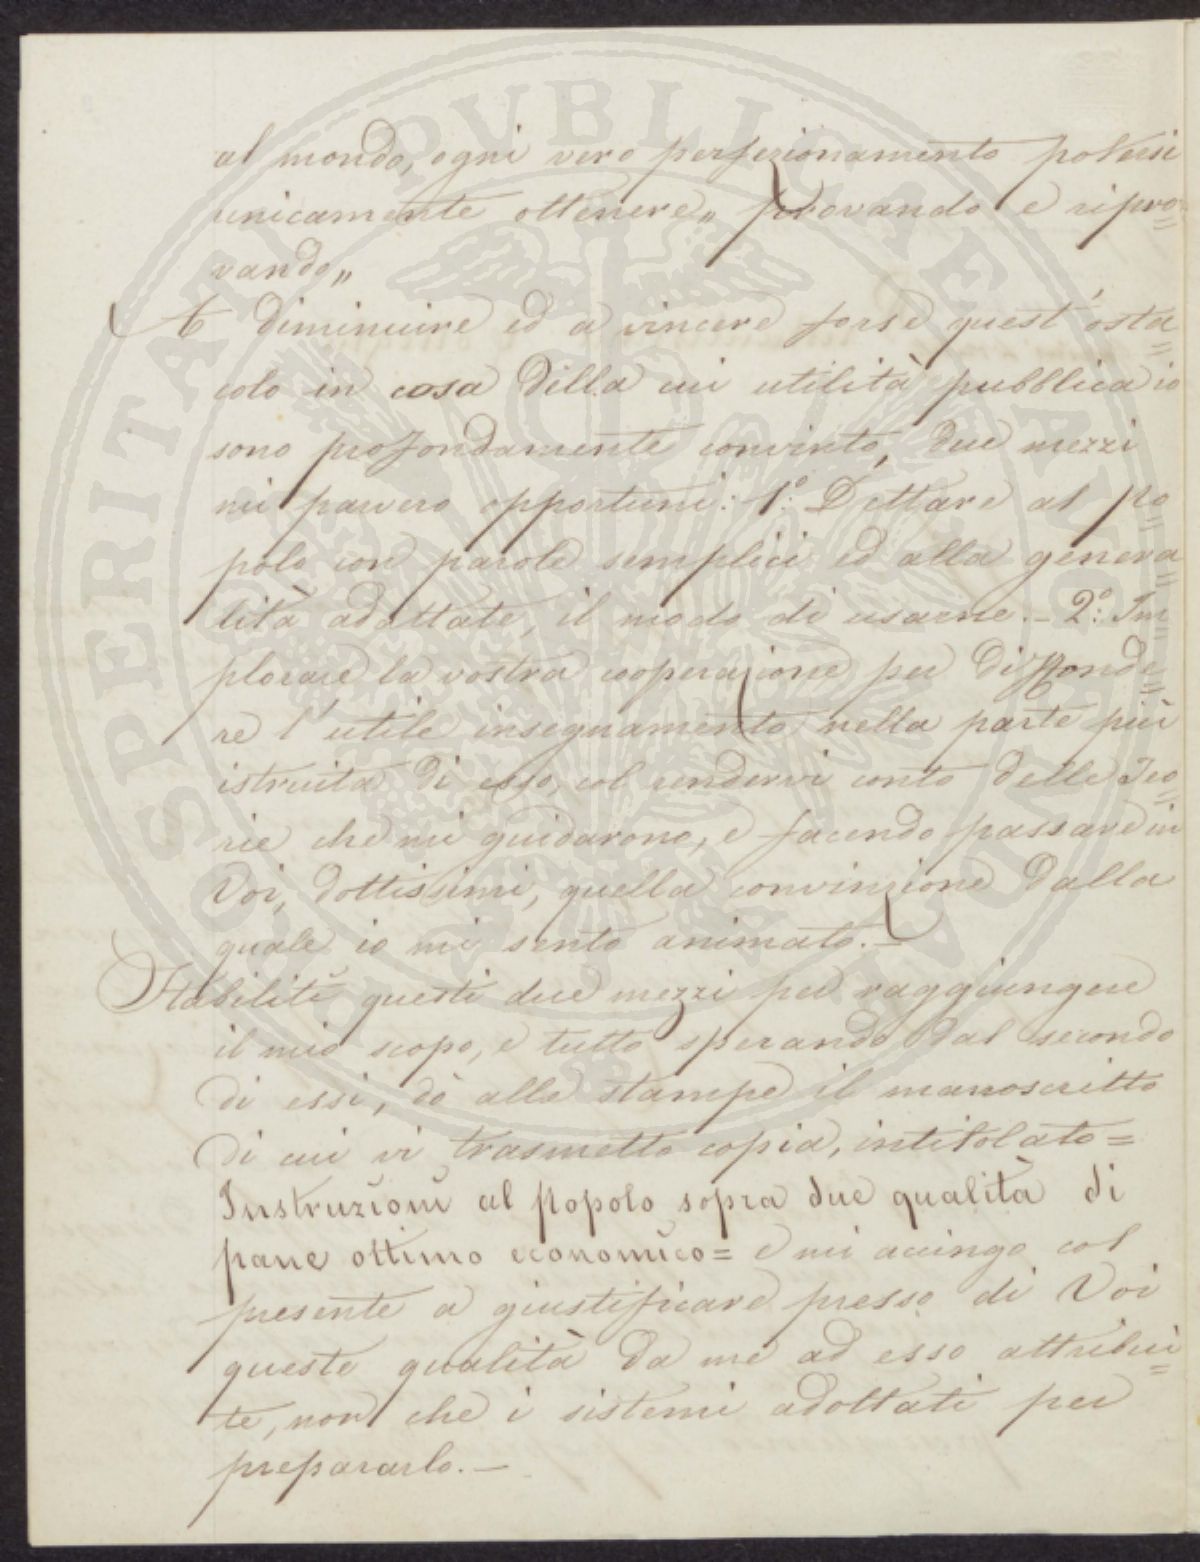 al mondo, ogni vero perfezionamento potersi
unicamente ottenere „ provando e ripro=
vando „
A diminuire ed a vincere forse quest'osta=
colo in cosa della cui utilità pubblica io
sono profondamente convinto, due mezzi
mi parvero opportuni: 1.° Dettare al po=
polo con parole semplici ed alla genera=
lità adattate, il modo di usarne. – 2.° Im=
plorare la vostra cooperazione per diffonde=
re l'utile insegnamento nella parte più
istruita di esso, col rendervi conto delle Teo=
rie che mi guidarono, e facendo passare in
Voi, dottissimi, quella convinzione dalla
quale io mi sento animato. –
Stabiliti questi due mezzi per raggiungere
il mio scopo, e tutto sperando dal secondo
di essi, dò alle stampe il manoscritto
di cui vi trasmetto copia, intitolato =
Instruzioni al popolo sopra due qualità di
pane ottimo economico = e mi accingo col
presente a giustificare presso di Voi
queste qualità da me ad esso attribui=
te, non che i sistemi adottati per
prepararlo. –
PROSPERITATI PVBLICAE AVGENDAE